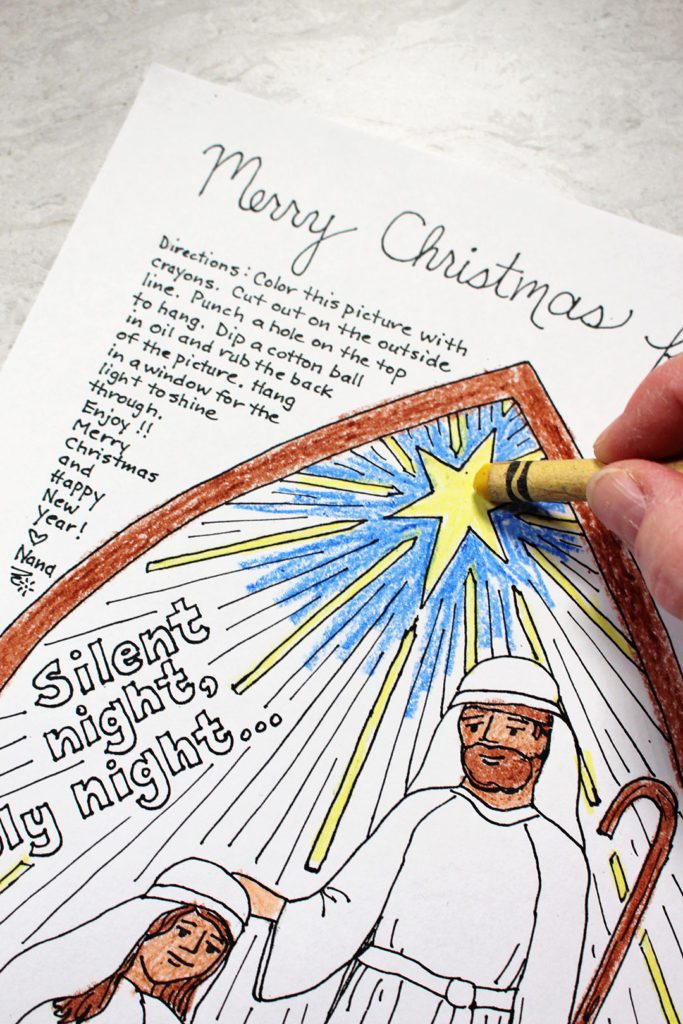 Merry Christmas
Directions: Color this picture with
crayons. Cut out on the outside
line. Punch a hole on the top
to hang. Dip a cotton ball
in oil and rub the back
of the picture. Hang
in a window for the
light to shine
through.
Enjoy!!
Merry
Christmas
and
Happy
New
Year!
♡
Nana
Silent
night,
night...